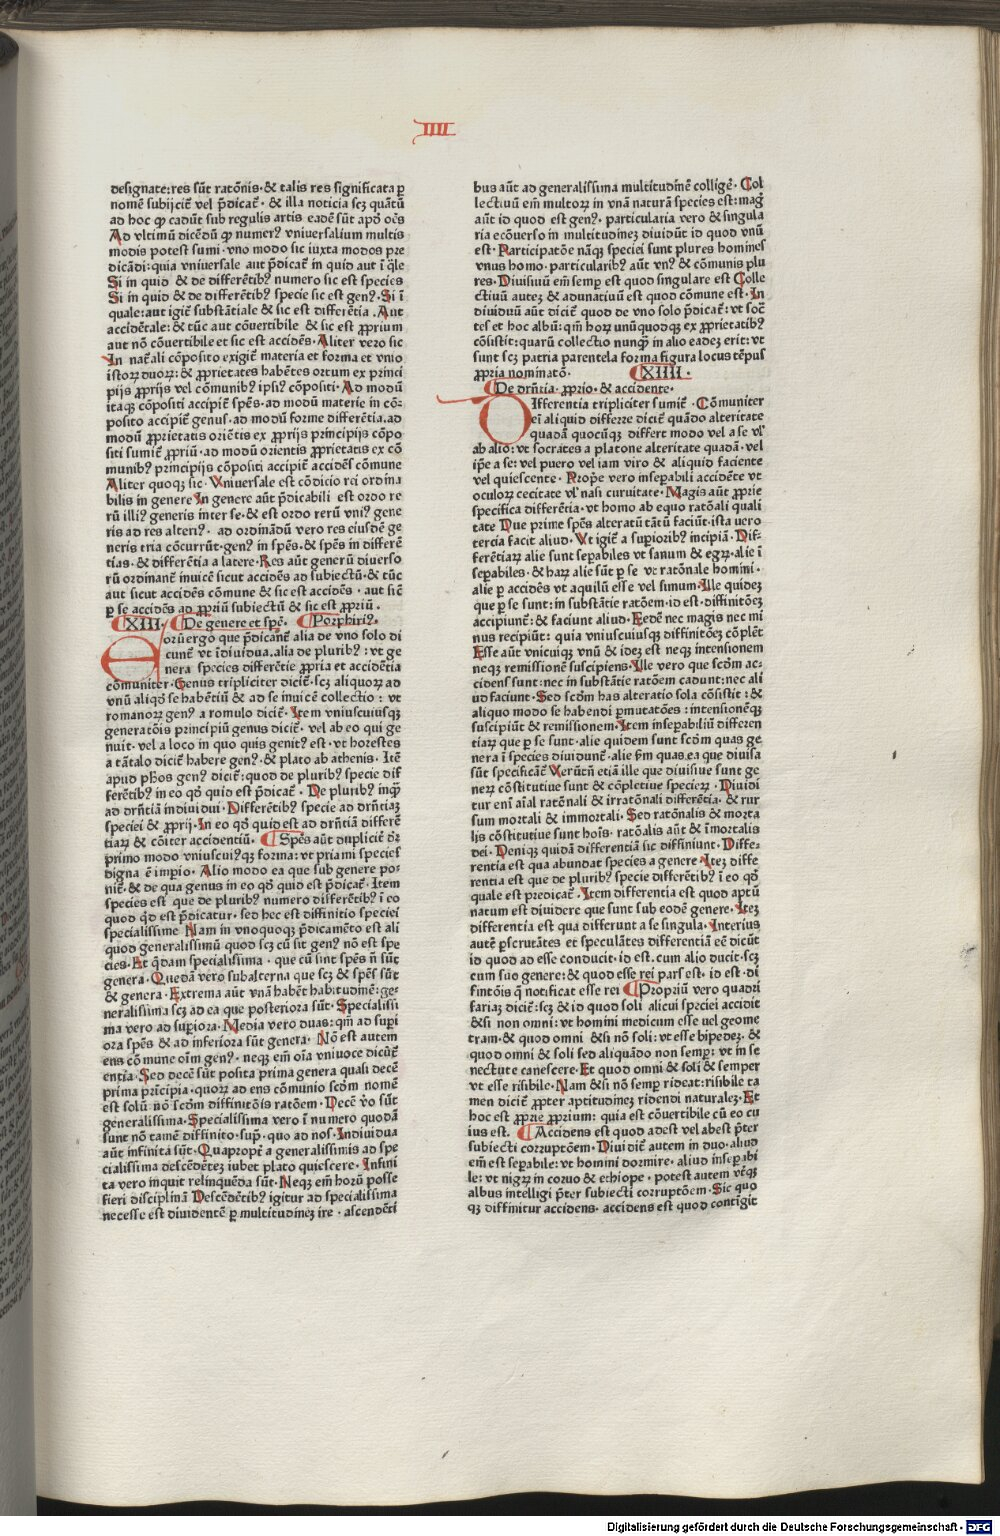 IIII
designate:res sūt ratōnis·& talis res significata ꝑ
nomē subijcit᷑ vel p̄dicat᷑·& illa noticia scꝫ quātū
ad hoc ꝙ cadūt sub regulis artis eadē sūt apō oēs
Ad vltimū dicēdū ꝙ numerꝰ vniversalium multis
modis potest sumi·vno modo sic iuxta modos pre
dicādi:quia vniversale aut p̄dicat᷑ in quid aut ī q̄le
Si in quid & de differētibꝰ numero sic est species
Si in quid & de differētibꝰ specie sic est genꝰ·Si ī
quale:aut igit᷑ substātiale & sic est differētia·Aut
accidētale:& tūc aut cōvertibile & sic est ꝓprium
aut nō cōvertibile et sic est accidēs·Aliter vero sic
In nat᷑ali cōposito exigit᷑ materia et forma et vnio
istoꝝ duoꝝ:& ꝓprietates habētes ortum ex princi
pijs ꝓprijs vel cōmunibꝰ ipsiꝰ cōpositi·Ad modū
itaqꝫ cōpositi accipit᷑ spēs·ad modū materie in cō-
posito accipit᷑ genus·ad modū forme differētia·ad
modū ꝓprietatis oriētis ex ꝓprijs principijs cōpo
siti sumit᷑ ꝓpriū·ad modū orientis ꝓprietatis ex cō
munibꝰ principijs cōpositi accipit᷑ accidēs cōmune
Aliter quoqꝫ sic·Vniversale est cōdicio rei ordina
bilis in genere In genere aūt p̄dicabili est ordo re
rū illiꝰ generis inter se·& est ordo rerū vniꝰ gene
ris ad res alteriꝰ·ad ordinādū vero res eiusdē ge
neris tria cōcurrūt·genꝰ in spēs·& spēs in differē
tias·& differētia a latere·Res aūt generū diverso
rū ordinant᷑ invicē sicut accidēs ad subiectū·& tūc
aut sicut accidēs cōmune & sic est accidēs·aut sic᷑
ꝑ se accidēs ad ꝓpriū subiectū & sic est ꝓprium·
XIII· De genere et spē· Porphiriꝰ·
EOrū ergo que p̄dicānt᷑ alia de vno solo di
cunt᷑ vt īdividua·alia de pluribꝰ:vt ge
nera species differētie ꝓpria et accidētia
cōmuniter·Genus tripliciter dicit᷑·scꝫ aliquoꝝ ad
vnū aliqō se habētiū & ad se invicē collectio:vt
romanoꝝ genꝰ a romulo dicit᷑·Item vniuscuiusqꝫ
generatōis principiū genus dicit᷑·vel ab eo qui ge
nuit·vel a loco in quo quis genitꝰ est·vt horestes
a tātalo dicit᷑ habere genꝰ·& plato ab athenis·Itē
apud pħos genꝰ dicit᷑:quod de pluribꝰ specie dif
ferētibꝰ in eo qō quid est p̄dicat᷑·De pluribꝰ inqꝫ
ad drn̄tiā individui·Differētibꝰ specie ad drn̄tiaꝫ
speciei & ꝓprij·In eo qō quid est ad drn̄tiā differē
tiaꝝ & cōiter accidentiū· Spēs aūt dupliciter dr̄
primo modo vniuscuiꝰqꝫ forma:vt priami species
digna ē imꝑio·Alio modo ea que sub genere po-
nit᷑·& de qua genus in eo qō quid est p̄dicat᷑·Item
species est que de pluribꝰ numero differētibꝰ ī eo
quod qd est p̄dicatur·sed hec est diffinitio speciei
specialissime Nam in vnoquoqꝫ p̄dicamēto est ali
quod generalissimū quod scꝫ cū sit genꝰ nō est spe
cies·Et q̄dam specialissima·que cū sint spēs n̄ sūt
genera·Quedā vero subalterna que scꝫ & spēs sūt
& genera·Extrema aūt vnā habēt habitudinē:ge-
neralissima scꝫ ad ea que posteriora sūt·Specialissi
ma vero ad supiora·Media vero duas:qm̄ ad supi
ora spēs & ad inferiora sūt genera·Nō est autem
ens cōmune oīm genꝰ·neqꝫ em̄ oīa vnivoce dicūt᷑
entia·Sed decē sūt posita prima genera quasi decē
prima prīcipia·quoꝝ ad ens cōmunio scdm nomē
est solū nō scdm diffinitōis ratōem·Decē v̄o sūt
generalissima·Specialissima vero ī numero quodā
sunt nō tamē diffinito·supple·quo ad nos·Individua
aūt infinita sūt·Quapropt᷑ a generalissimis ad spe
cialissima descēdētes iubet plato quiescere·Infini
ta vero inquit relinquēda sūt·Neqꝫ em̄ horū posse
fieri disciplinā Descēdētibꝰ igitur ad specialissima
necesse est dividentē ꝑ multitudineꝫ ire·ascendēti
bus aūt ad generalissima multitudinē colligē·Col
lectivū em̄ multoꝝ in vnā naturā species est:magꝭ
aūt id quod est genꝰ·particularia vero & singula
ria ecōverso in multitudineꝫ dividūt id quod vnū
est·Participatōe nāqꝫ speciei sunt plures homines
vnus homo·particularibꝰ aūt vnꝰ & cōmunis plu
res·Divisivū em̄ semꝑ est quod singulare est Colle
ctivū auteꝫ & adunativū est quod cōmune est·In
dividuū aut dicit᷑ quod de vno solo p̄dicat᷑:vt socr̄
tes et hoc albū:qm̄ hoꝝ unūquodqꝫ ex ꝓprietatibꝰ
cōsistit:quarū collectio nunqꝫ in alio eadeꝫ erit:vt
sunt scꝫ patria parentela forma figura locus tēpus
ꝓpria nominatō· XIIII·
De drn̄tia ꝓprio·& accidente·
DIfferentia tripliciter sumit᷑·Cōmuniter
eī aliquid differre dicit᷑ quādo alteritate
quadā quocūqꝫ differt modo vel a se vl'
ab alio:vt socrates a platone alteritate quadā·vel
ip̄e a se:vel puer vel iam viro & aliquid faciente
vel quiescente·Prop̄e vero insepabili accidēte vt
oculoꝝ cecitate vl' nasi curuitate·Magis aūt ꝓprie
specifica differētia·vt homo ab equo ratōali quali
tate Due prime spēs alteratū tātū faciūt·ista uero
tercia facit aliud·Vt igit᷑ a supioribꝰ incipiā·Dif-
ferētiaꝝ alie sunt sepabiles vt sanum & egꝝ·alie ī
sepabiles·& haꝝ alie sūt ꝑ se vt ratōnale homini·
alie ꝑ accidēs vt aquilū esse vel simum·Ille quideꝫ
que ꝑ se sunt:in substātie ratōem·id est·diffinitōeꝫ
accipiunt᷑:& faciunt aliud·Eedē nec magis nec mi
nus recipiūt:quia vniuscuiusqꝫ diffinitōeꝫ cōplēt
Esse aūt vnicuiqꝫ vnū & ideꝫ est neqꝫ intensionem
neqꝫ remissionē suscipiens·Ille vero que scdm ac-
cidens sunt:nec in substātie ratōem cadunt:nec ali
ud faciunt·Sed scdm has alteratio sola cōsistit:&
aliquo modo se habendi ꝑmutatōes:intensionēqꝫ
suscipiūt & remissionem·Item insepabiliū differen
tiaꝝ que ꝑ se sunt·alie quidem sunt scdm quas ge
nera ī species dividunt᷑·alie ẜm quas ea que divisa
sūt specificāt᷑ Verūtn̄ etiā ille que divisive sunt ge
neꝝ cōstitutive sunt & cōpletive specieꝝ·Dividi
tur eni aīal ratōnali & irratōnali differētia·& rur
sum mortali & immortali·Sed ratōnalis & morta
lis cōstitutive sunt hoīs·ratōalis aūt & īmortalis
dei·Deniqꝫ quidā differentiā sic diffiniunt·Diffe-
rentia est qua abundat species a genere·Iteꝫ diffe
rentia est que de pluribꝰ specie differētibꝰ ī eo qō
quale est predicat᷑·Item differentia est quod aptū
natum est dividere que sunt sub eodē genere·Iteꝫ
differentia est qua differunt a se singula·Interius
autē ꝑscrutātes et speculātes differentiā eē dicūt
id quod ad esse conducit·id est·cum alio ducit·scꝫ
cum suo genere:& quod esse rei pars est·id est·di
finitōis q̄ notificat esse rei Propriū vero quadri
fariaꝫ dicit᷑:scꝫ & id quod soli alicui speciei accidit
&si non omni:vt homini medicum esse uel geome
tram·& quod omni &si nō soli:vt esse bipedeꝫ·&
quod omni & soli sed aliquādo non semꝑ:vt in se
nectute canescere·Et quod omni & soli & semper
vt esse risibile·Nam &si nō semꝑ rideat:risibile ta
men dicit᷑ ꝓpter aptitudineꝫ ridendi naturaleꝫ·Et
hoc est ꝓprie ꝓprium:quia est cōvertibile cū eo cu
ius est· Accidens est quod adest vel abest p̄ter
subiecti corruptōem·Dividit᷑ autem in duo·aliud
em̄ est sepabile:vt homini dormire·aliud insepabi
le:vt nigꝝ in corvo & ethiope·potest autem vtqꝫ
albus intelligi p̄ter subiecti corruptōem·Sic quo
qꝫ diffinitur accidens·accidens est quod contigit
Digitalisierung gefördert durch die Deutsche Forschungsgemeinschaft - DFG